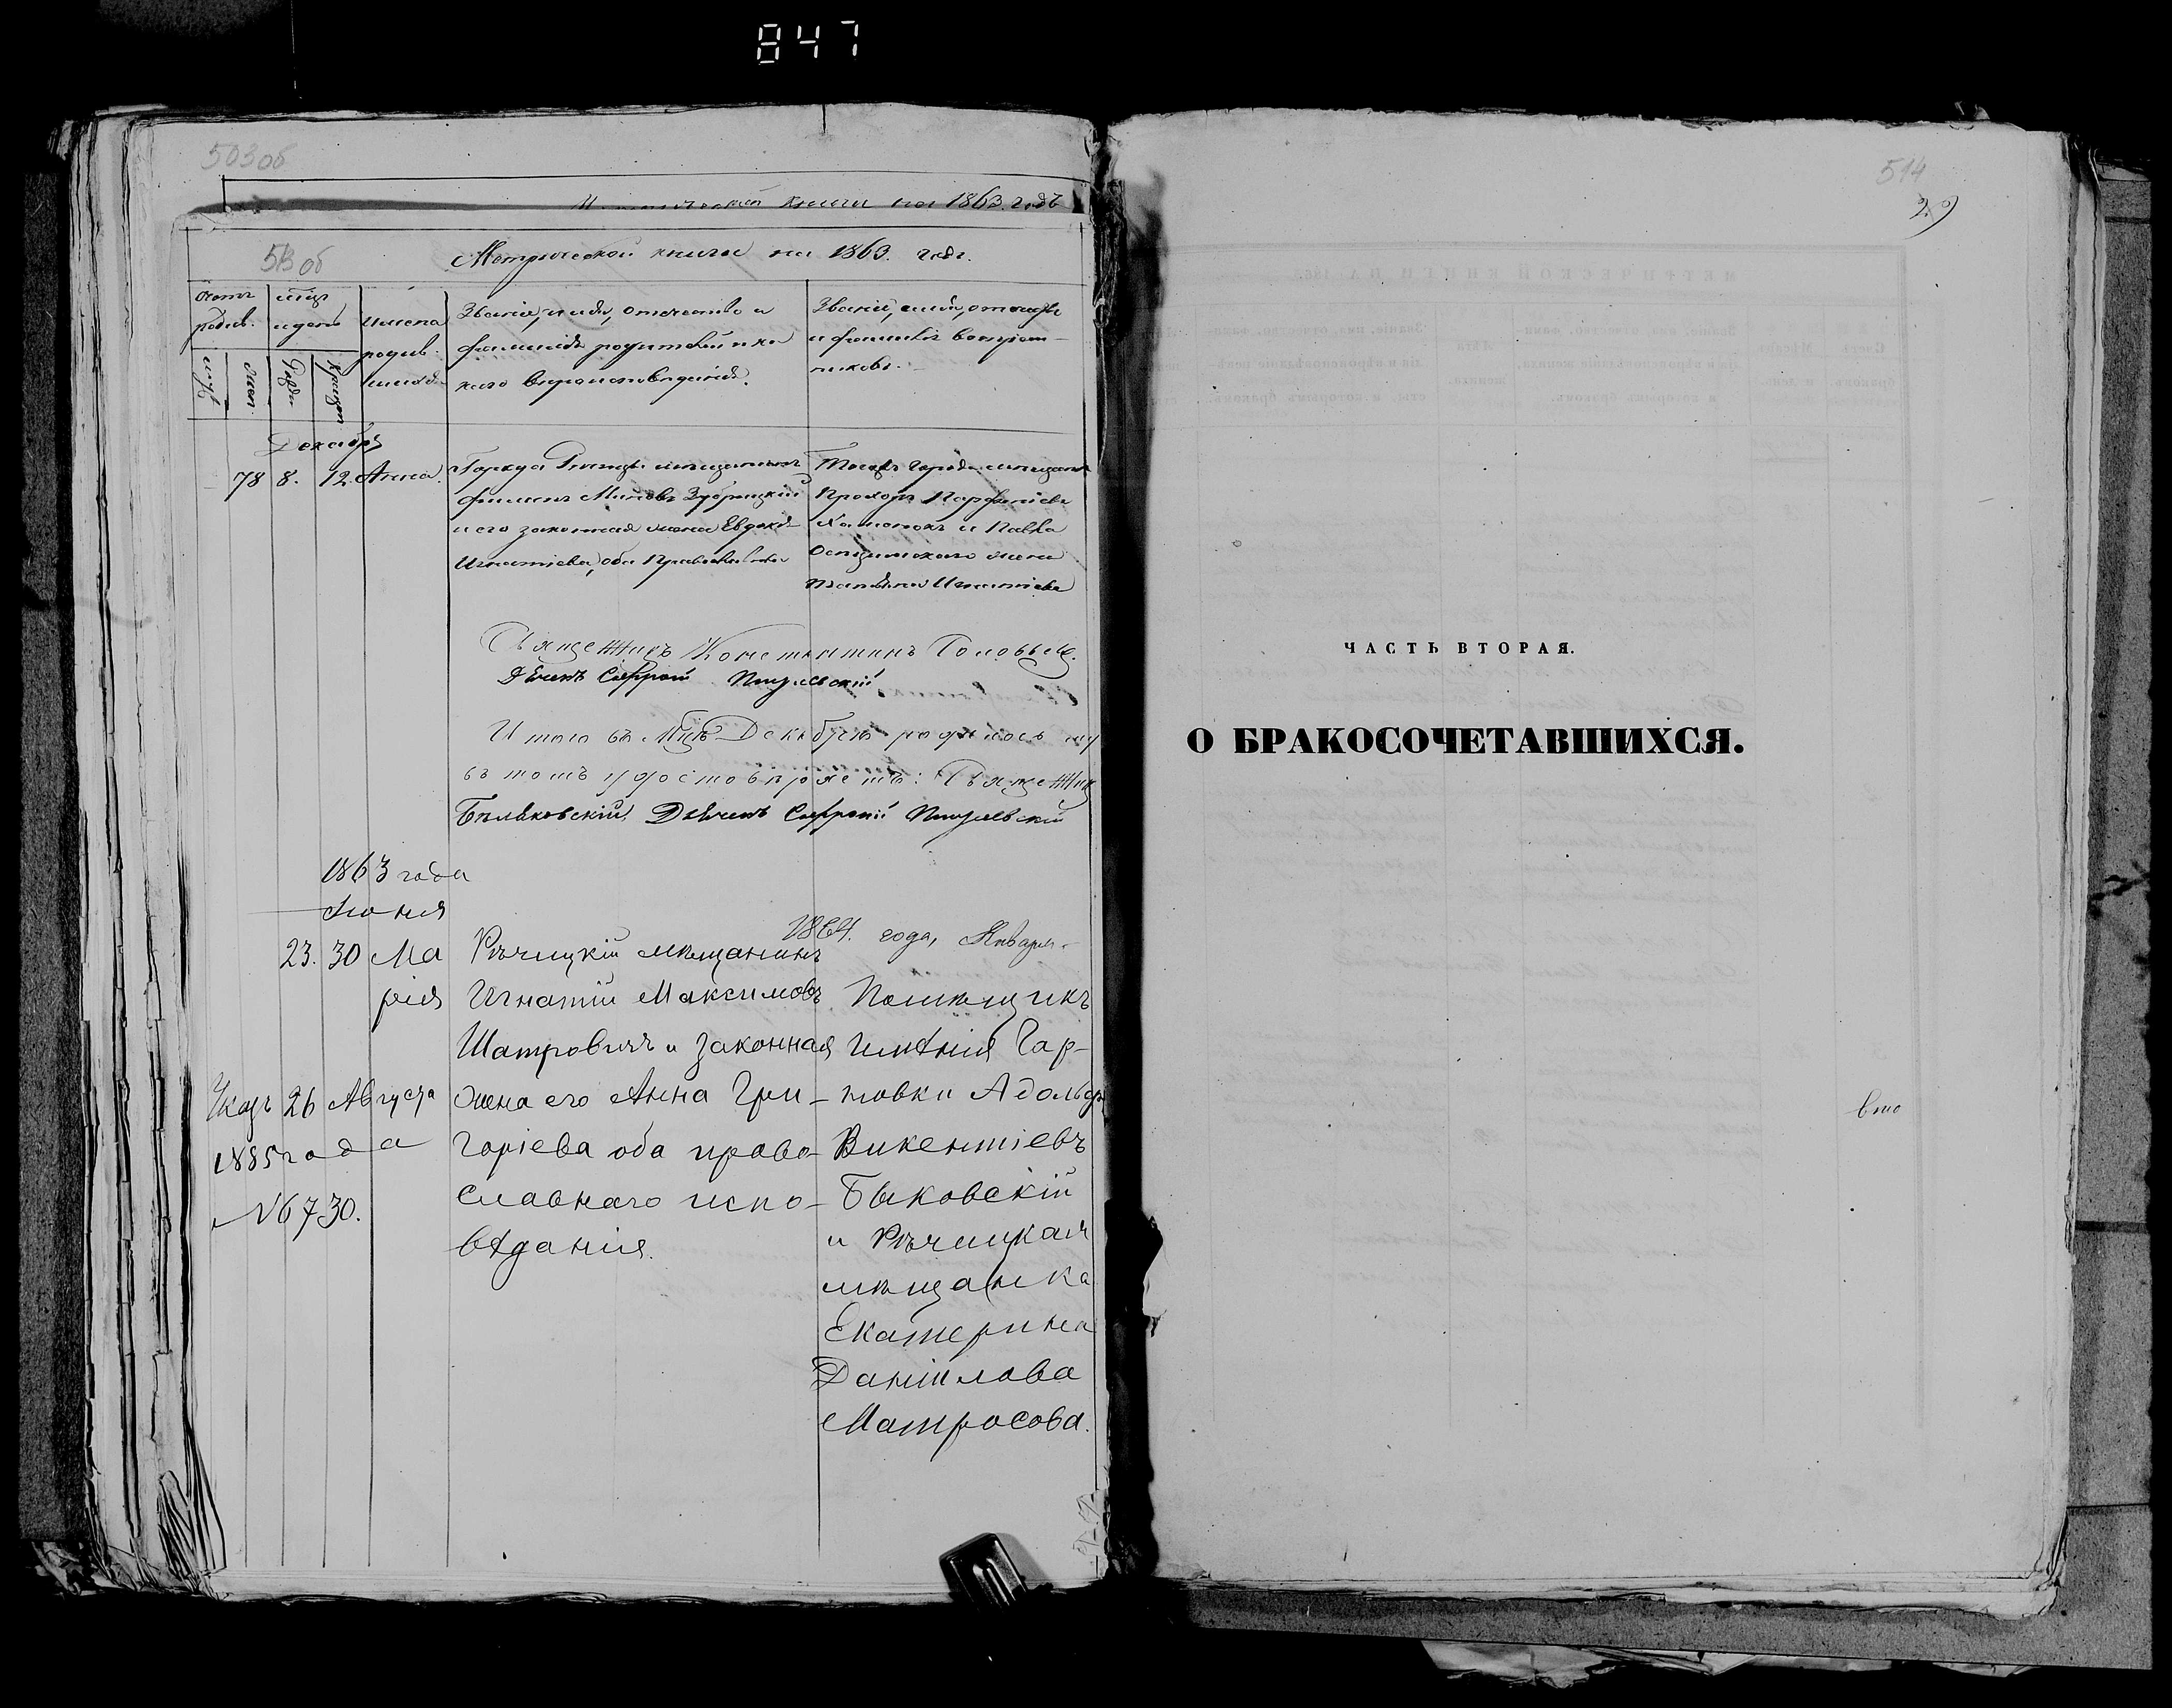 847
503 об
Метрической книги на 1863. годъ
513 об
Метрической книги на 1863. годъ.
Счетъ родив.
муж.
жен.
мѣсяцъ и день
Рожд.
Крещен.
имена родив-шихся
Званіе, имя, отчество и
фамилія родителей и ка
кого вѣроисповѣданія.
Званіе, имя, отчество
и фамилія воспріем-
никовъ.
Декабрь
78 8. 12. Анна.
Города Рѣчицы мѣщанинъ
Филипъ Зубрицкій
и его законная жена Евдокія
Игнатіева, оба Православные
Тогожъ города мѣщанинъ
Прохоръ Парфеніевъ
и Павла
жена
Татьяна Игнатіева
Священникъ Константинъ
Дьячекъ
Итого въ Мцѣ Декабрѣ родилось
въ томъ удостовѣряетъ: Священник
Дьячекъ
1863 года
Іюня
23. 30 Ма
рія
Рѣчицкій мѣщанинъ
Игнатій Максимовъ
Шатровичъ и законная
жена его Анна Гри-
горіева оба право-
славнаго испо-
вѣданія.
1864. года, Января
Помѣщикъ
имѣнія Гар-
повки Адольфъ
Викентіевъ
Быковскій
и Рѣчицкая
мѣщанка
Екатерина
Даніилова
Матросова.
Указъ 26 Августа
1885 года
№ 6730.
514
29
ЧАСТЬ ВТОРАЯ.
О БРАКОСОЧЕТАВШИХСЯ.